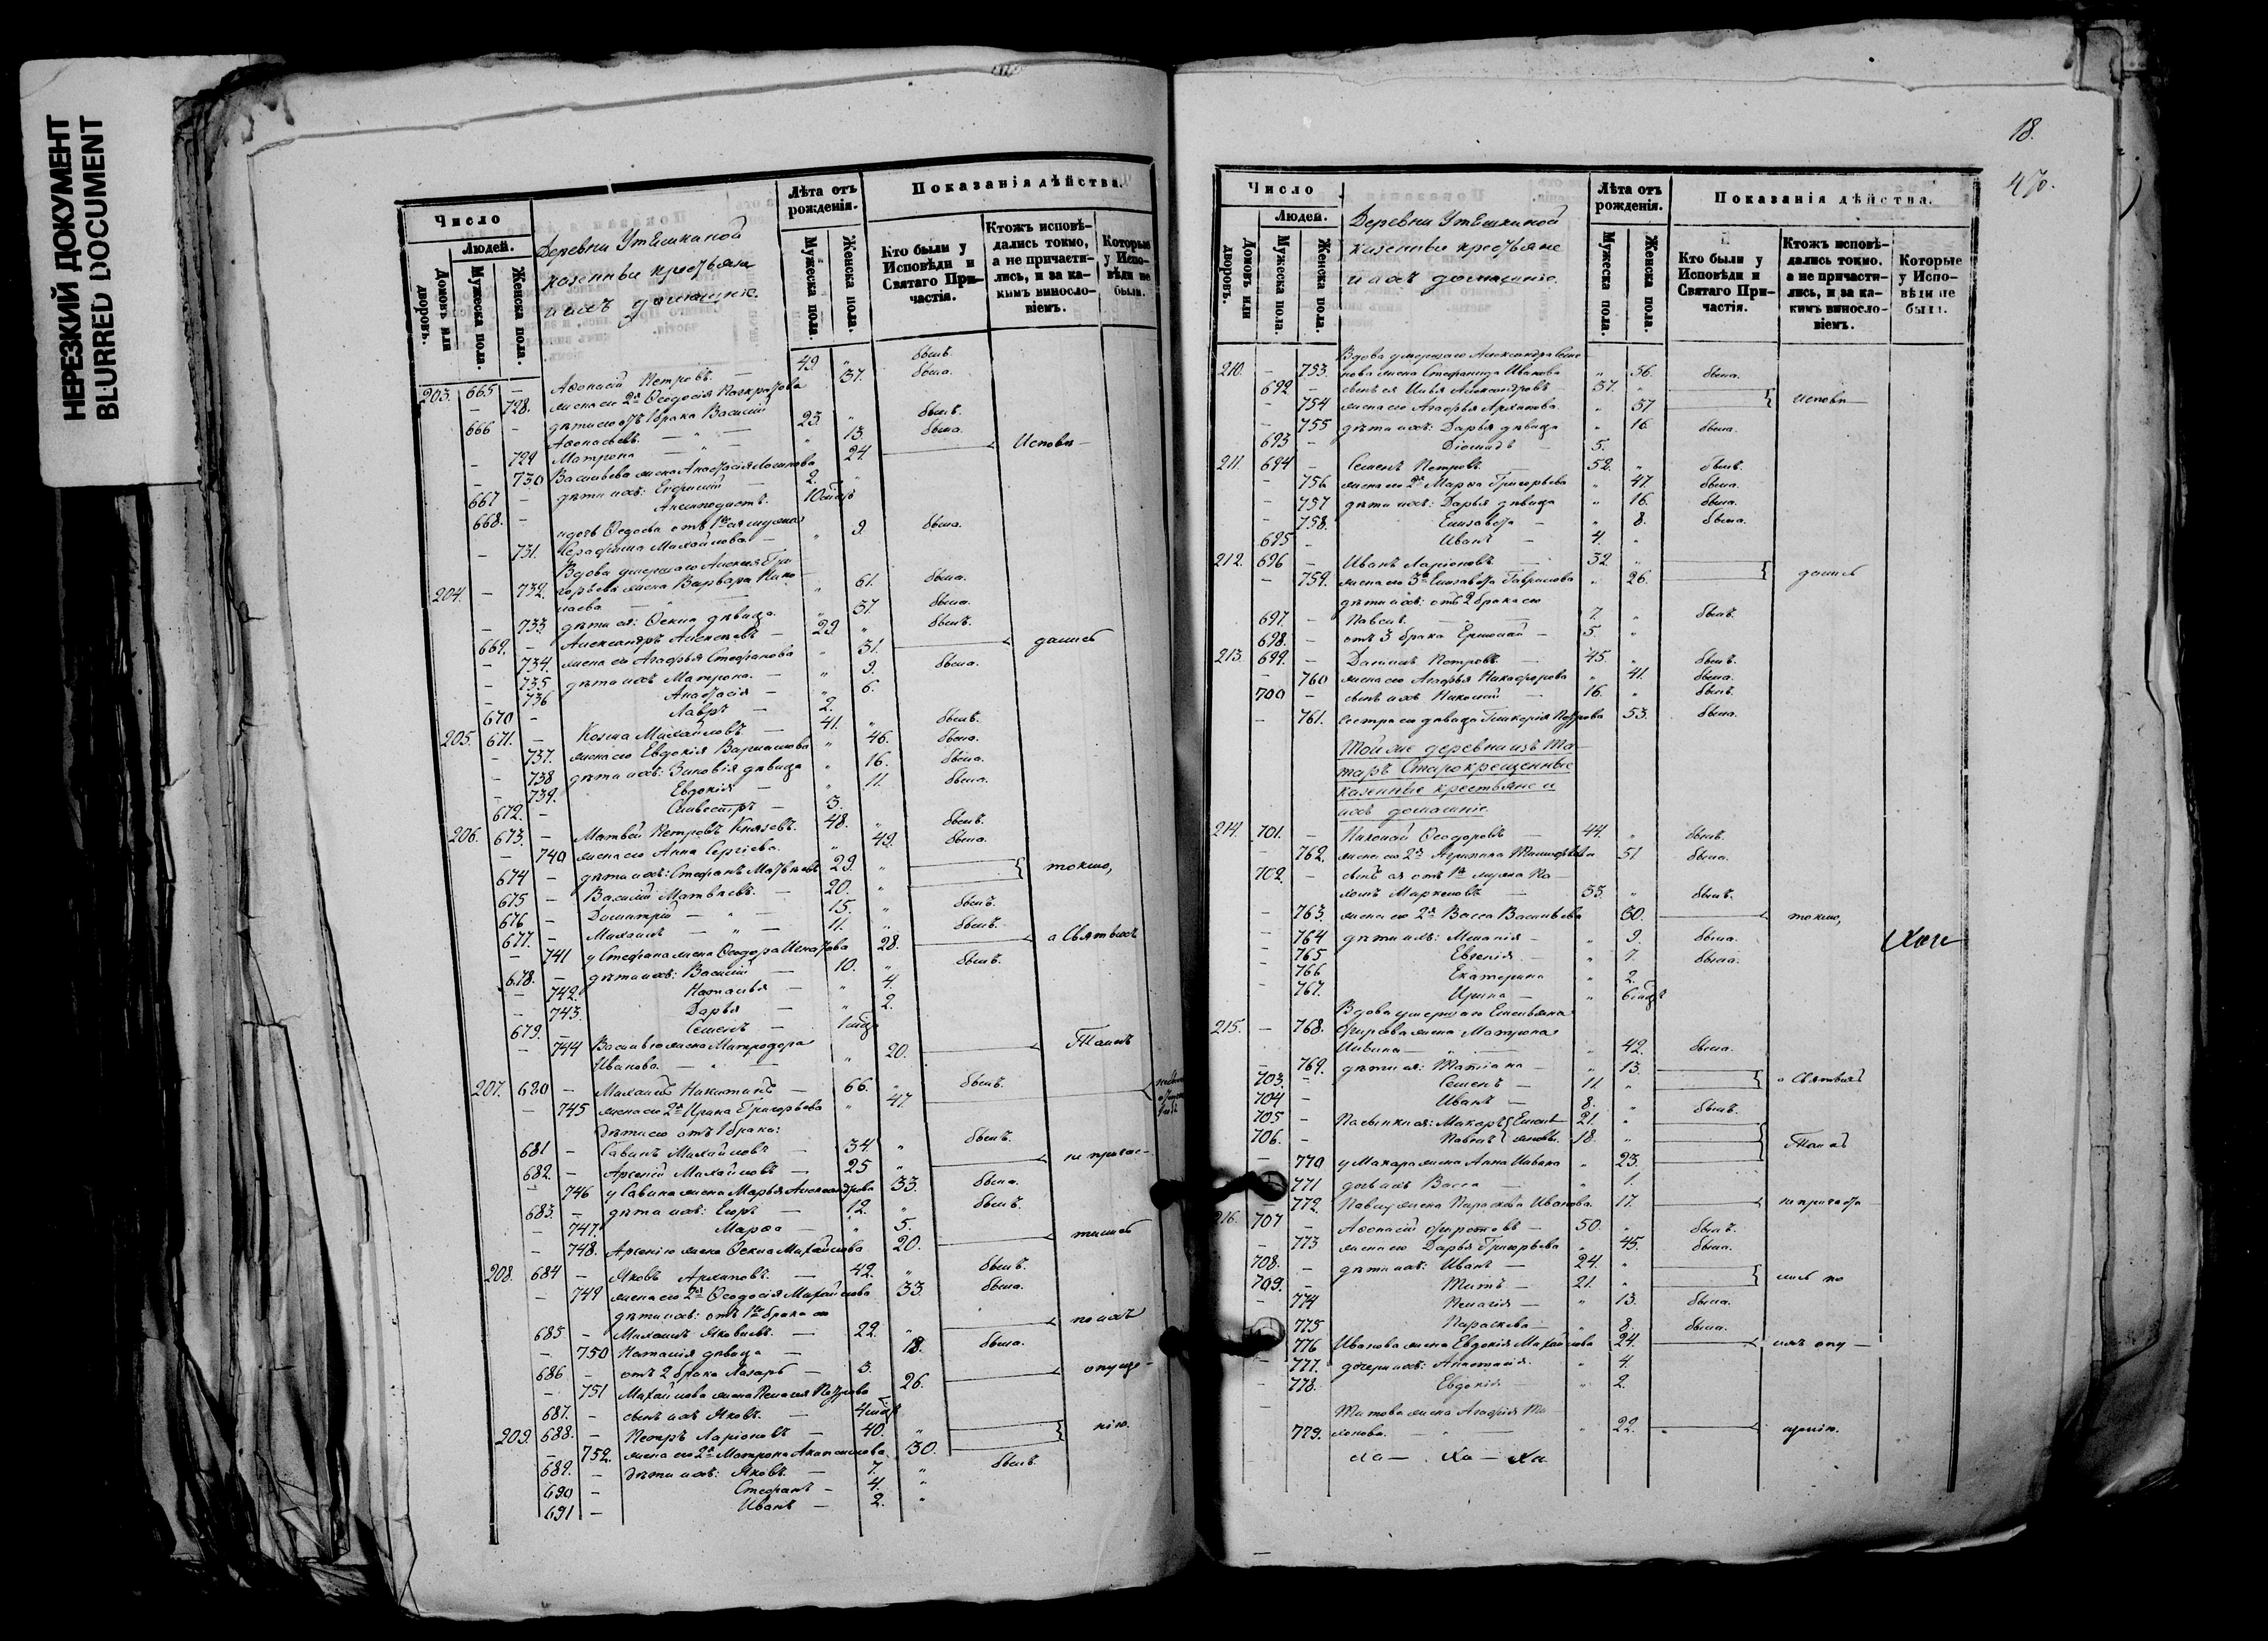 НЕРЕЗКИЙ ДОКУМЕНТ
BLURRED DOCUMENT
Число
Людей.
Домовъ или дворовъ.
Мужеска пола.
Женска пола.
Деревни Утяшкиной
казенные крестьяне
и ихъ домашніе.
Лѣта отъ рожденія.
Мужеска пола.
Женска пола.
Показанія дѣйства.
Кто были у Исповѣди и Святаго Причастія.
Ктожъ исповѣдались токмо, а не причастились, и за какимъ винословіемъ.
Которые у Исповѣди не были.
203. 665 – Аѳонасій Петровъ. – 49. „ былъ.
– 728. жена его 2я Ѳеодосія Панкратова 37. была.
дѣти его отъ 1 брака Василій
666 – Аѳонасьевъ. – 23. „ былъ.
– 729 Матрона – „ 13. была.
– 730 Васильева жена Анастасія 24. Исповѣ–
667 – дѣти ихъ: 2. „
668. – 10 мѣся
– 731. Серафима Михайлова – „ 9. была.
Вдова умершаго Алексея Гри–
204. – 732. горьева жена Варвара Нико– „ 61. была.
лаева
– 733 дѣти ея: Ѳекла дѣвица „ 37. была.
669. – Александръ Алексѣевъ – 29. „ былъ.
– 734. жена его Агафья Стефанова „ 31. дались
– 735 дѣти ихъ Матрона. – „ 9. была.
– 736 Анастасія – „ 6.
670 – Лавръ – 2.
205. 671. – Козма Михайловъ – 41. „ былъ.
– 737. жена его Евдокія Варламова „ 46. была.
– 738 дѣти ихъ: Зиновія дѣвица „ 16. была.
– 739. Евдокія – „ 11. была.
672. – Сильвестръ – 3.
206. 673. – Матвей Петровъ Князевъ. 48. „ былъ.
– 740 жена его Анна Сергіева. „ 49. была.
674 – дѣти ихъ: Стефанъ Матвѣевъ 29. „ токмо,
675 – Василій Матвѣевъ. – 20. „
676 – Димитрій – „ – 15. „ былъ.
677. – Михаилъ – „ – 11. „ былъ.
– 741 у Стефана жена Ѳеодора Игнатова 28. а Святыхъ
678. – дѣти ихъ: Василій – 10. „ былъ.
– 742. Наталья – „ 4.
– 743. Дарья – „ 2.
679. – Семенъ – 1 мѣся
– 744 Васильева жена Митродора
Иванова. – „ – „ 20. Таинъ
207. 680 – Михаилъ Никитинъ – 66. „ былъ.
– 745 жена его 2я Ирина Григорьева „ 47.
дѣти его отъ 1 брака:
681 – Савинъ Михайловъ – 34. „ былъ.
682. – Арсеній Михайловъ – 25 „ не причас–
– 746 у Савина жена Марья Александрова 33. была.
683. – дѣти ихъ: Егоръ – 12. „ былъ.
– 747. Марѳа – „ 5.
– 748. Арсенію жена Ѳекла Михайлова 20. тились
208. 684 – Яковъ Архиповъ. – 42. „ былъ.
– 749 жена его 2я Ѳеодосія Михайлова 33. была.
дѣти ихъ: отъ 1го брака его
685 – Михаилъ Яковлевъ. – 22. „ по ихъ
– 750 Наталія дѣвица – 18. была.
686 – отъ 2 брака Лазарь – 3.
– 751 Михайлова жена Пелагея Петрова 26. опуще–
687. – сынъ ихъ Яковъ. – 4 мѣся
209. 688. – Петръ Ларіоновъ – 40. „ нію.
– 752. жена его 2я Матрона 30.
689. – дѣти ихъ: Яковъ. – 7. „ былъ.
690 – Стефанъ – 4. „
691 – Иванъ – 2. „
18.
Число
Людей.
Домовъ или дворовъ.
Мужеска пола.
Женска пола.
Деревни Утяшкиной
казенные крестьяне
и ихъ домашніе.
Лѣта отъ рожденія.
Мужеска пола.
Женска пола.
Показанія дѣйства.
Кто были у Исповѣди и Святаго Причастія.
Ктожъ исповѣдались токмо, а не причастились, и за какимъ винословіемъ.
Которые у Исповѣди не были.
Вдова умершаго Александра Семе
210. – 753. нова жена Стефанида Иванова „ 56. была.
692 – сынъ ея Илья Александровъ – 37. „ Исповѣ–
– 754 жена его Агафья Архипова „ 37
– 755 дѣти ихъ: Дарья дѣвица „ 16. была.
693 – Діомидъ – 5.
211. 694 – Семенъ Петровъ 52. „ былъ.
– 756 жена его 2я Марѳа Григорьева „ 47. была.
– 757 дѣти ихъ: Дарья дѣвица „ 16. была.
– 758. Елисавета – „ 8. была.
695 – Иванъ – 4. „
212. 696 – Иванъ Ларіоновъ – 32. „ дались
– 759. жена его 3я Елисавета Гаврилова „ 26.
дѣти ихъ: отъ 2 брака его
697. – Павелъ. – „ – 7. „ былъ.
698. – отъ 3 брака Ермолай – 5. „
213. 699. – Даніилъ Петровъ – 45. „ былъ.
– 760 жена его Агафья Никифорова „ 41. была.
700 – сынъ ихъ Николай – 16. „ былъ.
– 761. сестра его дѣвица Гликерія Петрова 53. была.
Той же деревни изъ Та–
таръ Старокрещенные
казенные крестьяне и
ихъ домашніе.
214. 701. – Николай Ѳеодоровъ – 44. „ былъ.
– 762. жена его 2я Агрипина Тимофеева 51 была.
702. – сынъ ея отъ 1го мужа Па–
хомъ Маркеловъ – 33. „ былъ.
– 763. жена его 2я Васса Васильева 30. токмо,
– 764 дѣти ихъ: Меланія – „ 9. была.
765 Евгенія – „ 7. была.
766 Екатерина „ 2.
767. Ирина – „ 6 мѣся
Вдова умершаго Емельяна
215. – 768. жена Матрона
Ильина – „ 42. была.
– 769. дѣти ея: Татіана – „ 13. а Святыхъ
703. – Семенъ – 11. „
704 – Иванъ – 8. „ былъ.
705 – Пасынки ея: Макаръ Емель 21. „
706. – Павелъ яновы. 18. „ Таинъ
– 770 у Макара жена Анна Ильина „ 23.
771 дочь ихъ Васса – „ 1.
– 772. Павлу жена Параскева Иванова. 17. не причасти
216. 707 – Аѳонасій – 50. „ былъ.
– 773 жена его Дарья Григорьева „ 45. была.
708. – дѣти ихъ: Иванъ – 24. „
709. – Титъ – 21. „ лись по
– 774 Пелагія – „ 13. была.
775 Параскева – „ 8. была.
776 Иванова жена Евдокія Михайлова 24. ихъ опу–
– 777. дочери ихъ: Анастасія. „ 4.
– 778. Евдокія „ 2.
Титова жена Агафія Ти–
779. хонова. – „ – „ 22. щенію.